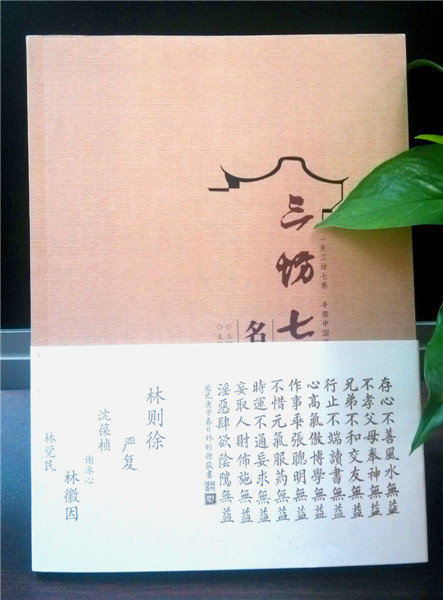 一片三坊七巷 半部中国
三坊七
名
存心不善風水無益
不孝父母奉神無益
兄弟不和交友無益
行止不端讀書無益
心高氣傲博學無益
作事乖張聰明無益
不惜元氣服药無益
時運不通妄求無益
妄取人財佈施無益
淫惡肆欲陰隲無益
道光庚子春日林則徐敬書
林则徐
严复
沈葆桢
谢冰心
林徽因
林觉民